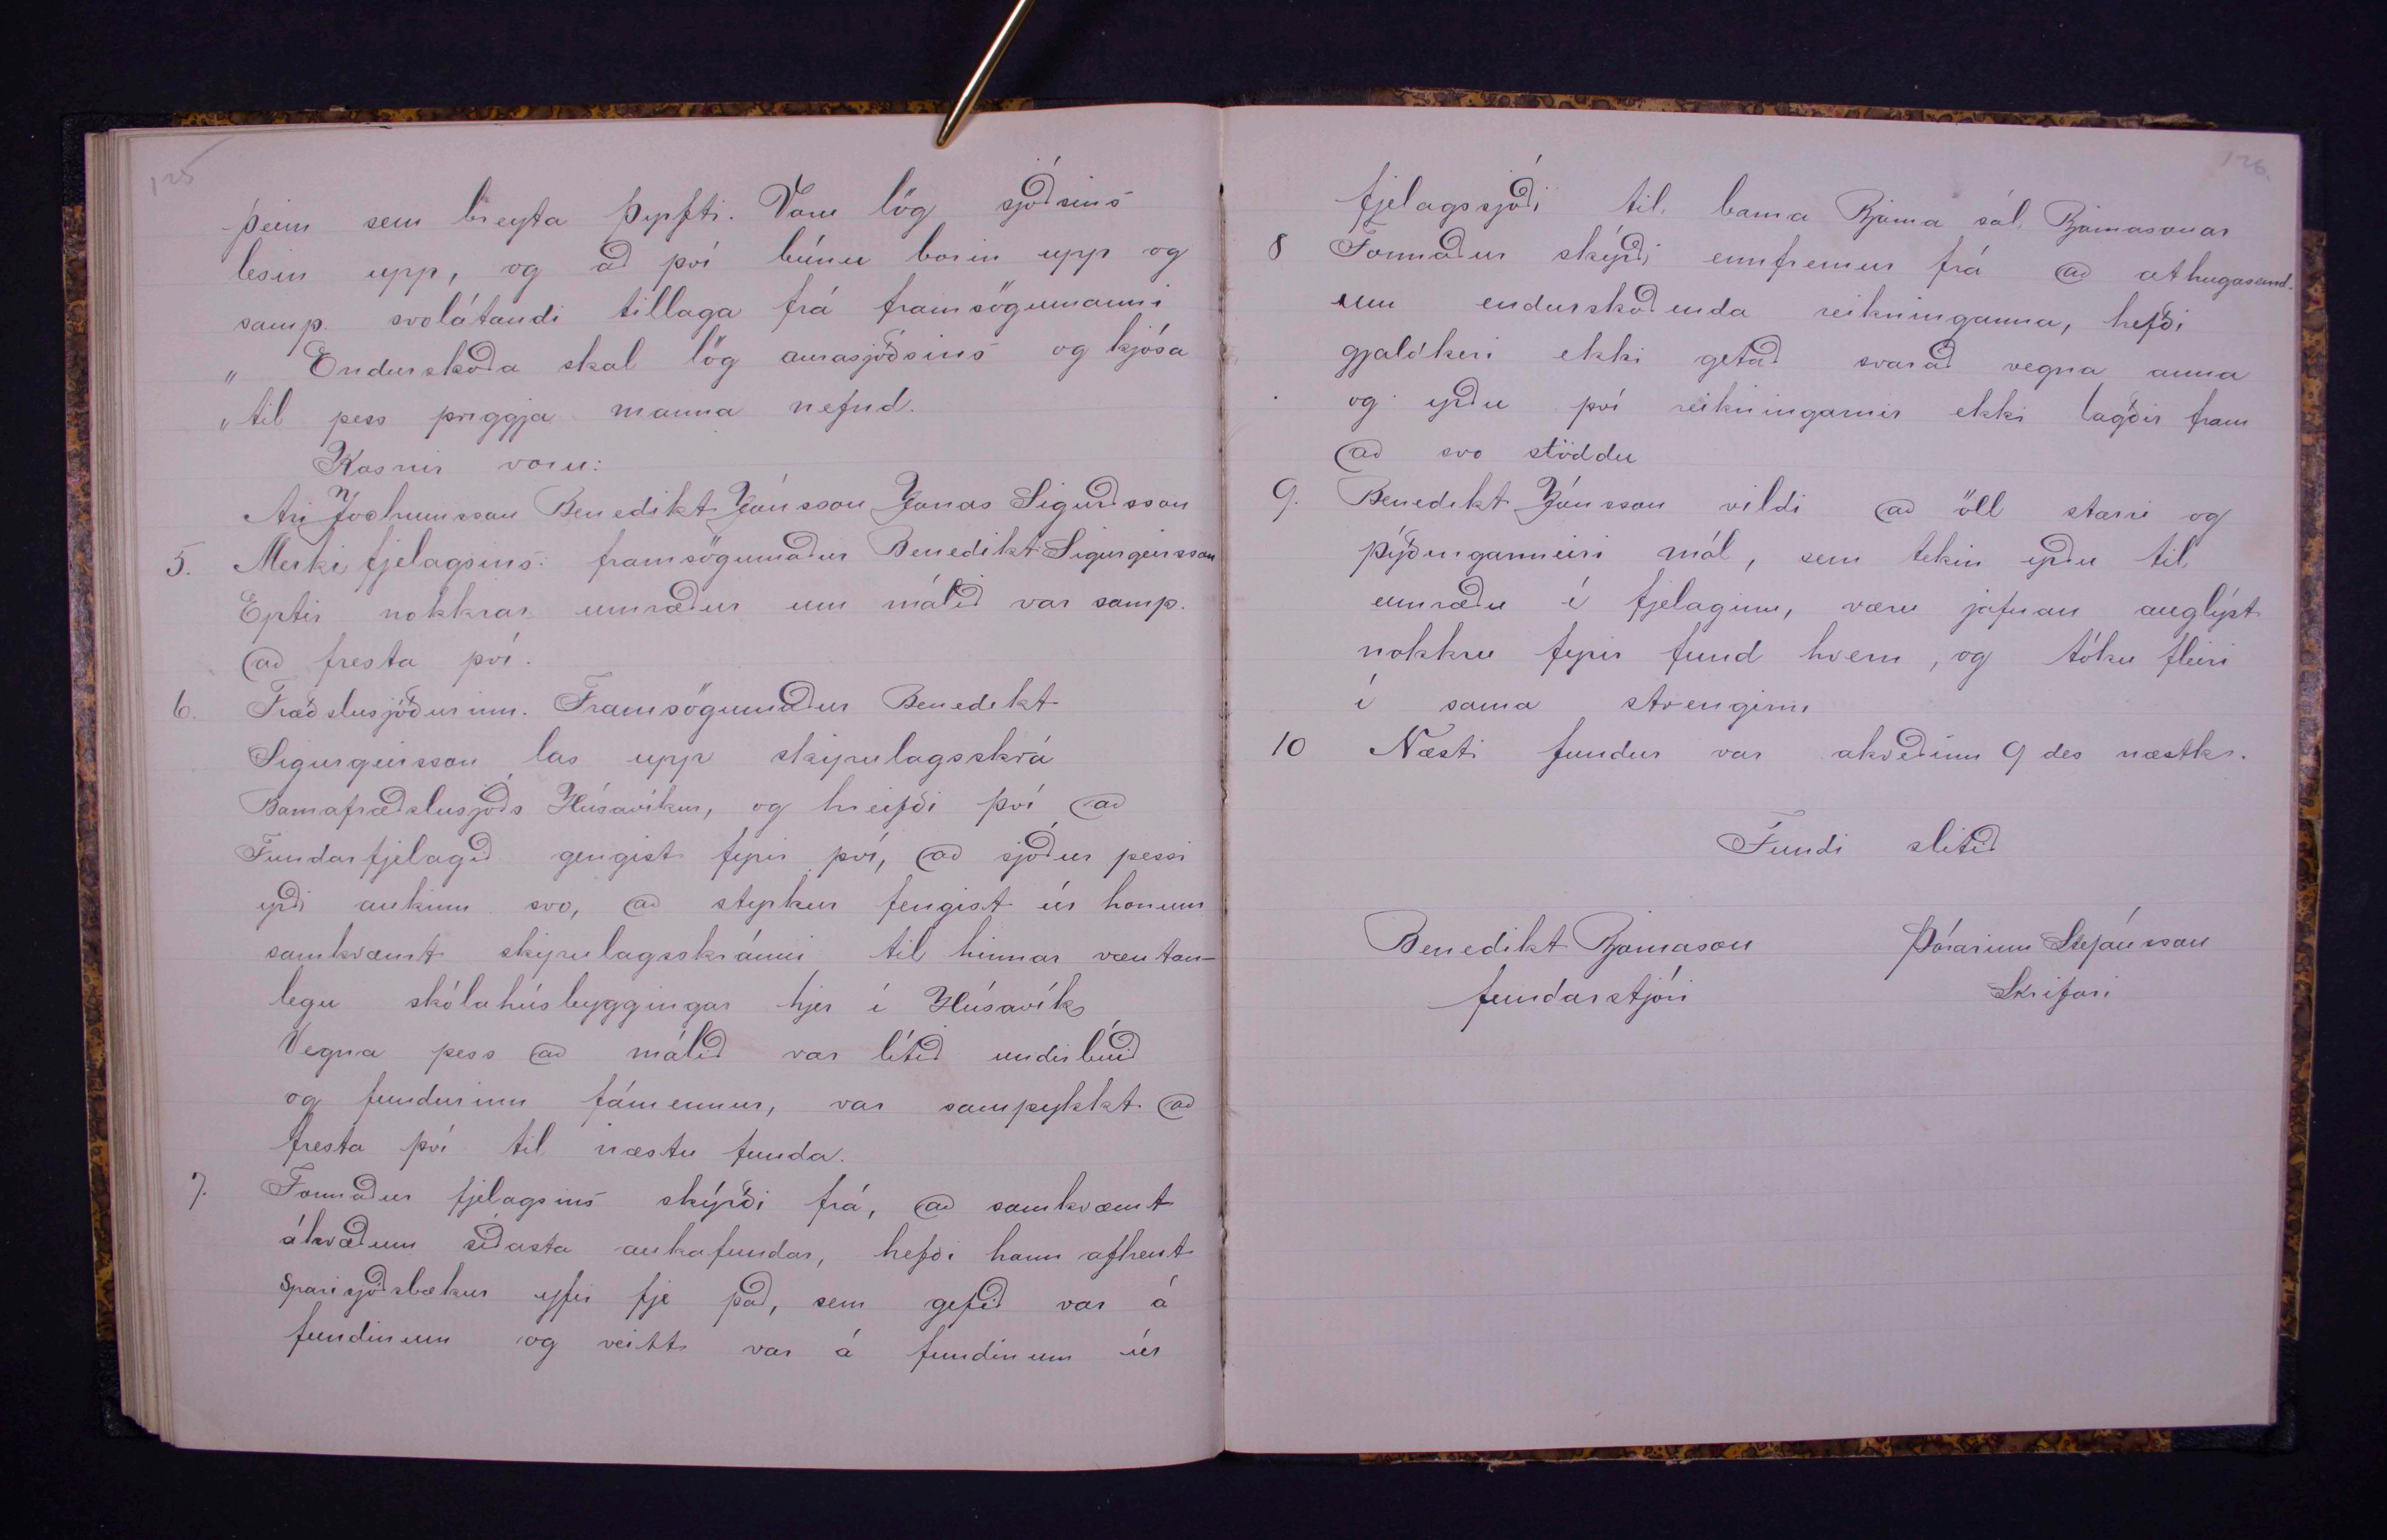 125
þeim sem breyta þyrfti. Voru lög sjóðsins
lesin upp, og að því búnu borin upp og
samþ. svolátandi tillaga frá framsögumanni
„ Endurskoða skal lög aurasjóðsins og kjósa
„ til þess þriggja manna nefnd.
Kosnir voru:
Ari Jochumsson Benedikt Jónsson Jónas Sigurðsson
5. Merki fjelagsins: framsögumaður Benedikt Sigurgeirsson
Eptir nokkrar umræður um málið var samþ.
að fresta því.
6. Fræðslusjóðurinn. Framsögumaður Benedikt
Sigurgeirsson las upp skipulagsskrá
Barnafræðslusjóðs Húsavíkur, og hreifði því að
Fundarfjelagið gengist fyrir því, að sjóður þessi
yrði aukinn svo, að styrkur fengist úr honum
samkvæmt skipulagsskránni til hinnar væntan-
legu skólahúsbyggingar hjer í Húsavík
Vegna þess að málið var lítið undirbúið
og fundurinn fámennur, var samþykkt að
fresta því til næstu funda.
7. Formaður fjelagsins skýrði frá, að samkvæmt
ákvæðum síðasta aukafundar, hefði hann afhent
Sparisjóðsbækur yfir fje það, sem gefið var á
fundinum og veitt var á fundinum úr
126.
fjelagssjóði til barna Bjarna sál. Bjarnasonar
8 Formaður skýrði ennfremur frá að athugasemd-
um endurskoðenda reikninganna, hefði
gjaldkeri ekki getað svarað vegna anna
og yrðu því reikningarnir ekki lagðir fram
að svo stöddu
9. Benedikt Jónsson vildi að öll stærri og
þýðingarmeiri mál, sem tekin yrðu til
umræðu í fjelaginu, væru jafnan auglýst
nokkru fyrir fund hvern, og tóku fleiri
í sama strenginn
10 Næsti fundur var akveðinn 9 des næstk.
Fundi slitið
Benedikt Bjarnason Þórarinn Stefánsson
fundarstjóri Skrifari